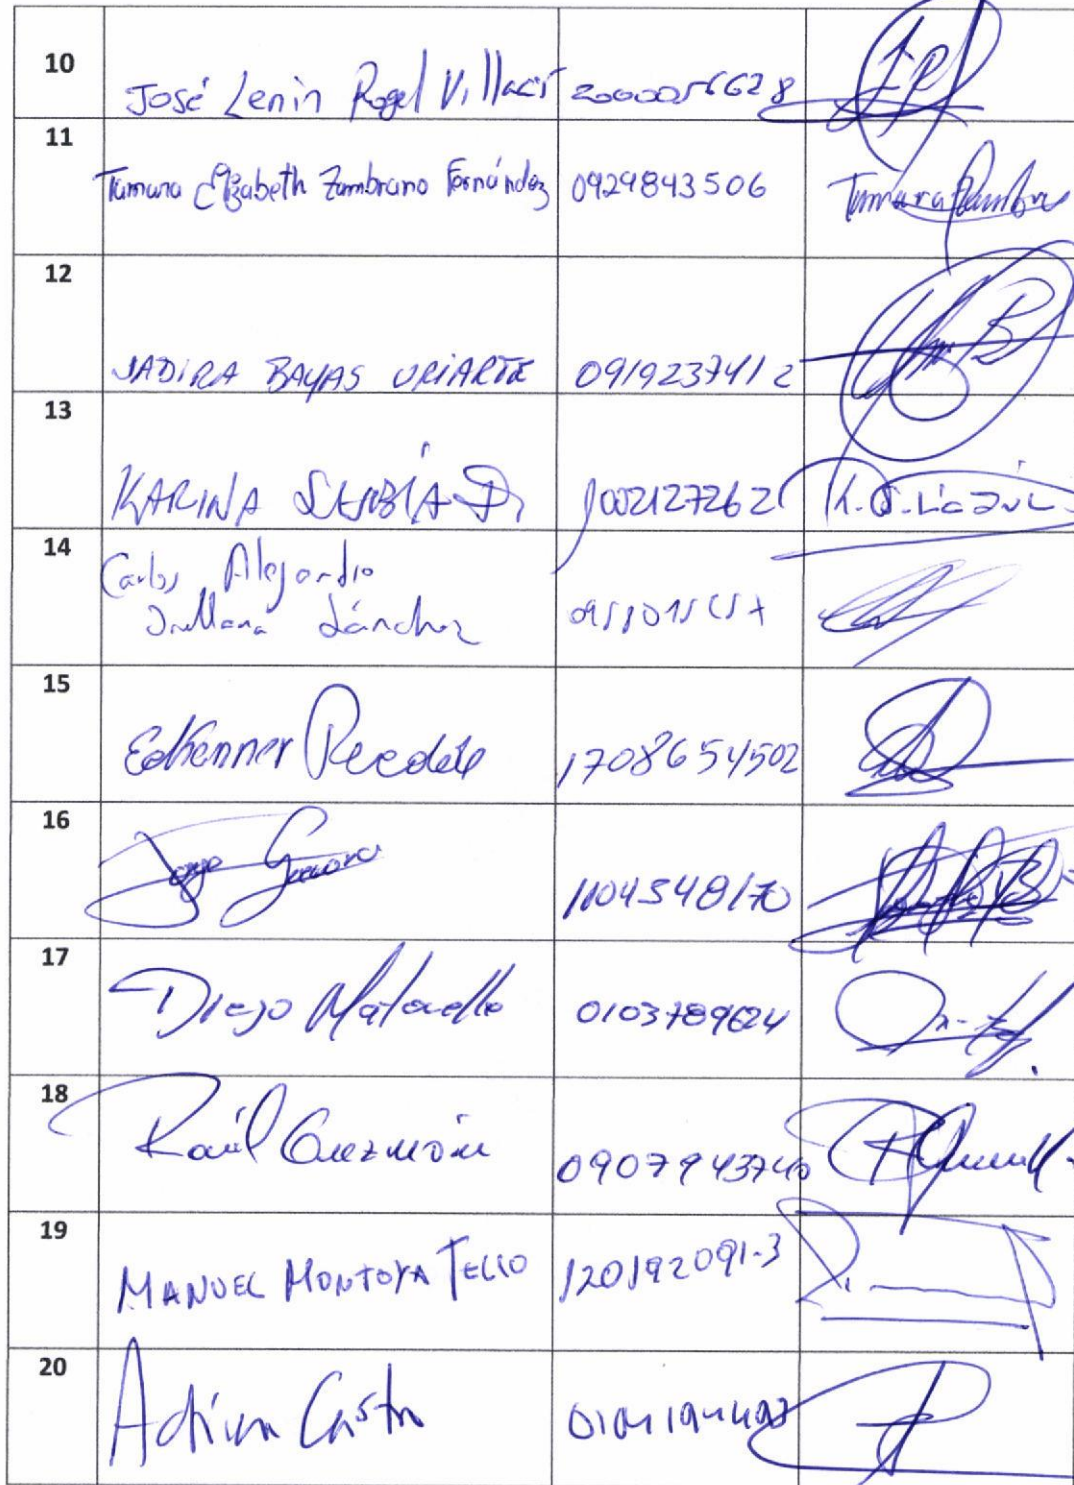 10
José Lenin Rogel Villacis 2000056628
11
Tamara Elizabeth Zambrano Fernández 0929843506 Tamara Zambra
12
JADIRA BAYAS URIARTE 0919237412
13
KARINA 1002127262
14
Carlos Alejandro
Orellana Sánchez
15
Edkenner Recalde 1708654502
16
Jorge Guamán 1104348170
17
Diego Matovelle 0103789624
18
Raúl Guzmán 0907943740
19
MANUEL MONTOYA TELLO 120192091-3
20
Adrian Castro